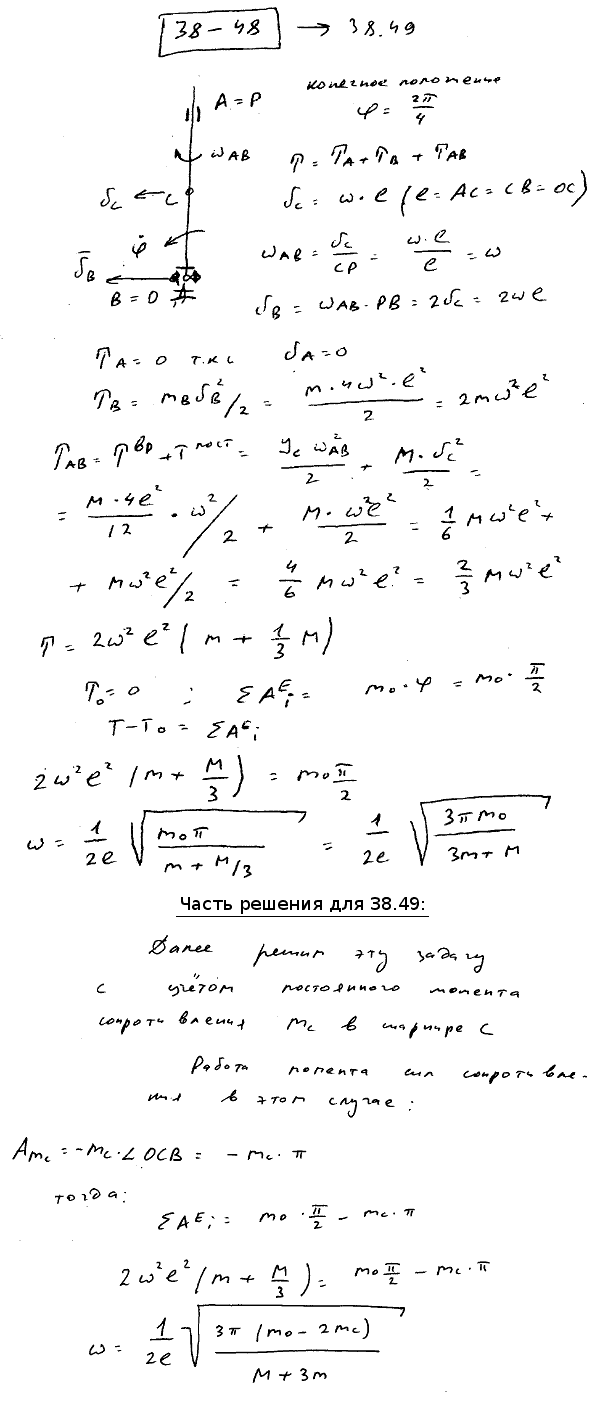 38 – 48 → 38.49
конечное положение
φ = 2π/4
A = P
ω_AB
T = T_A + T_B + T_AB
v_C ← C
v_C = ω · l (l = AC = CB = OC)
φ̇
ω_AB = v_C/CP = ω·l/l = ω
v̄_B
B = O
v_B = ω_AB · PB = 2v_C = 2ωl
T_A = 0 т.к с v_A = 0
T_B = m_B v_B²/2 = m · 4ω² · l²/2 = 2mω²l²
T_AB = T^вр + T^пост = J_C ω_AB²/2 + M · v_C²/2 =
= M · 4l²/12 · ω²/2 + M · ω²l²/2 = 1/6 Mω²l² +
+ Mω²l²/2 = 4/6 Mω²l² = 2/3 Mω²l²
T = 2ω²l² (m + 1/3 M)
T₀ = 0 ; ΣA^E_i = m₀ · φ = m₀ · π/2
T – T₀ = ΣA^E_i
2ω²l² (m + M/3) = m₀ π/2
ω = 1/2l √(m₀π/(m + M/3)) = 1/2l √(3πm₀/(3m + M))
Часть решения для 38.49:
Далее решим эту задачу
с учётом постоянного момента
сопротивления m_c в шарнире C
Работа момента сил сопротивле-
ния в этом случае:
A_mc = –m_c · ∠OCB = – m_c · π
тогда:
ΣA^E_i = m₀ · π/2 – m_c · π
2ω²l² (m + M/3) = m₀ π/2 – m_c · π
ω = 1/2l √(3π (m₀ – 2m_c)/(M + 3m))